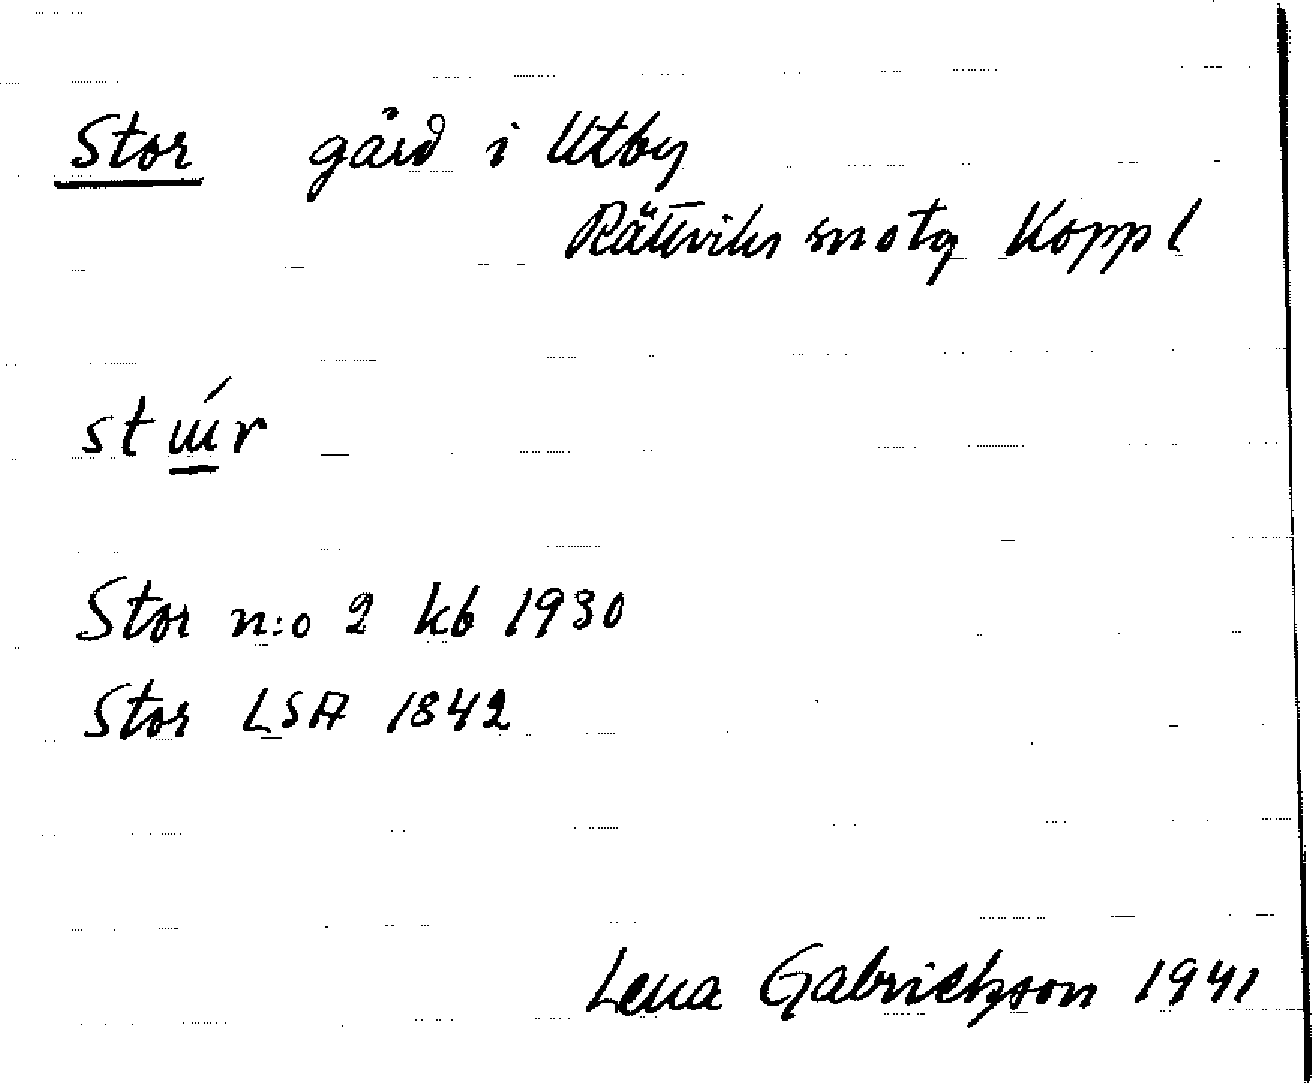 Stor gård i Utby
Rättviks sn o tg Koppl
stɯ́r
Stor n:o 2 kb 1930
Stor LSA 1842
Lena Gabrielsson 1941